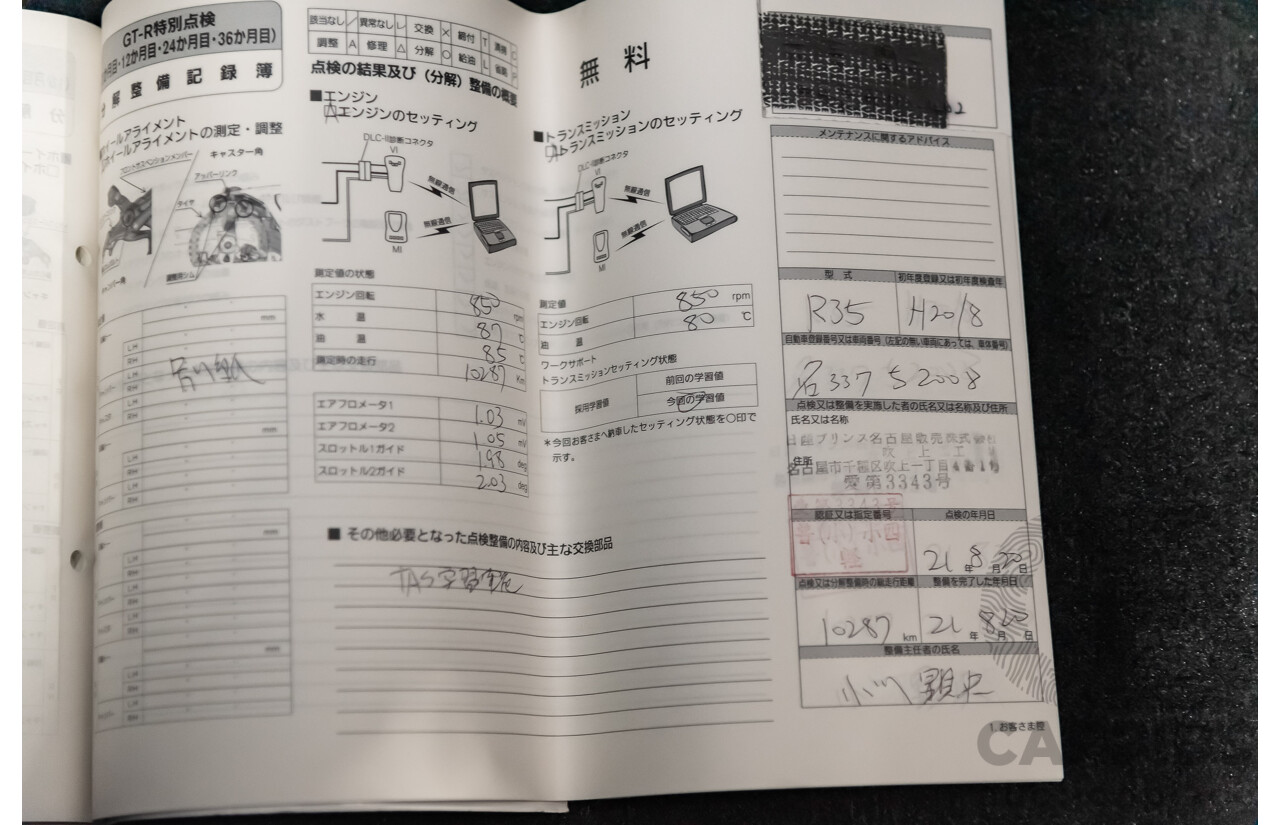 GT-R特別点検
か月目・12か月目・24か月目・36か月目)
分解整備記録簿
ホイールアライメント
ホイールアライメントの測定・調整
フロントサスペンションメンバー
キャスター角
アッパーリンク
タイヤ
キャンバー角
調整用シム
mm
LH
RH
LH
RH
LH
RH
別紙
mm
LH
RH
LH
RH
mm
LH
RH
LH
RH
mm
LH
RH
LH
RH
該当なし / 異常なし レ 交換 × 締付 T 清掃 C
調整 A 修理 △ 分解 ○ 給油 L 省略 P
点検の結果及び(分解)整備の概要
無料
■エンジン
A エンジンのセッティング
DLC-II診断コネクタ
VI
無線通信
無線通信
MI
測定値の状態
エンジン回転 850 rpm
水 温 87 ℃
油 温 85 ℃
測定時の走行 10287 Km
エアフロメータ1 1.03 mV
エアフロメータ2 1.05 mV
スロットル1ガイド 1.98 deg
スロットル2ガイド 2.03 deg
■トランスミッション
A トランスミッションのセッティング
DLC-II診断コネクタ
VI
無線通信
無線通信
MI
測定値
エンジン回転 850 rpm
油 温 80 ℃
ワークサポート
トランスミッションセッティング状態
採用学習値
前回の学習値
今回の学習値
*今回お客さまへ納車したセッティング状態を○印で
示す。
■ その他必要となった点検整備の内容及び主な交換部品
メンテナンスに関するアドバイス
型 式 初年度登録又は初年度検査年
R35 H20/8
自動車登録番号又は車両番号(左記の無い車両にあっては、車体番号)
名 337 ち 2008
点検又は整備を実施した者の氏名又は名称及び住所
氏名又は名称
日産プリンス名古屋販売株式会社
吹上工
住所
名古屋市千種区吹上一丁目4番1号
愛第3343号
認証又は指定番号 点検の年月日
21 年 8 月 20 日
点検又は分解整備時の総走行距離 整備を完了した年月日
10287 km 21 年 8 月 20 日
整備主任者の氏名
小川 顕史
1. お客さま控